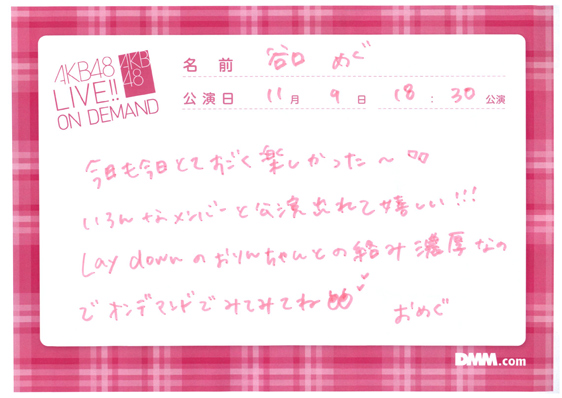 AKB48
LIVE!!
ON DEMAND
AKB
48
名前 谷口 めぐ
公演日 11月 9日 18:30公演
今日も今日とてすごく楽しかった〜
いろんなメンバーと公演出れて嬉しい!!!
Lay downのおりんちゃんとの絡み濃厚なの
でオンデマンドでみてみてね
おめぐ
DMM.com